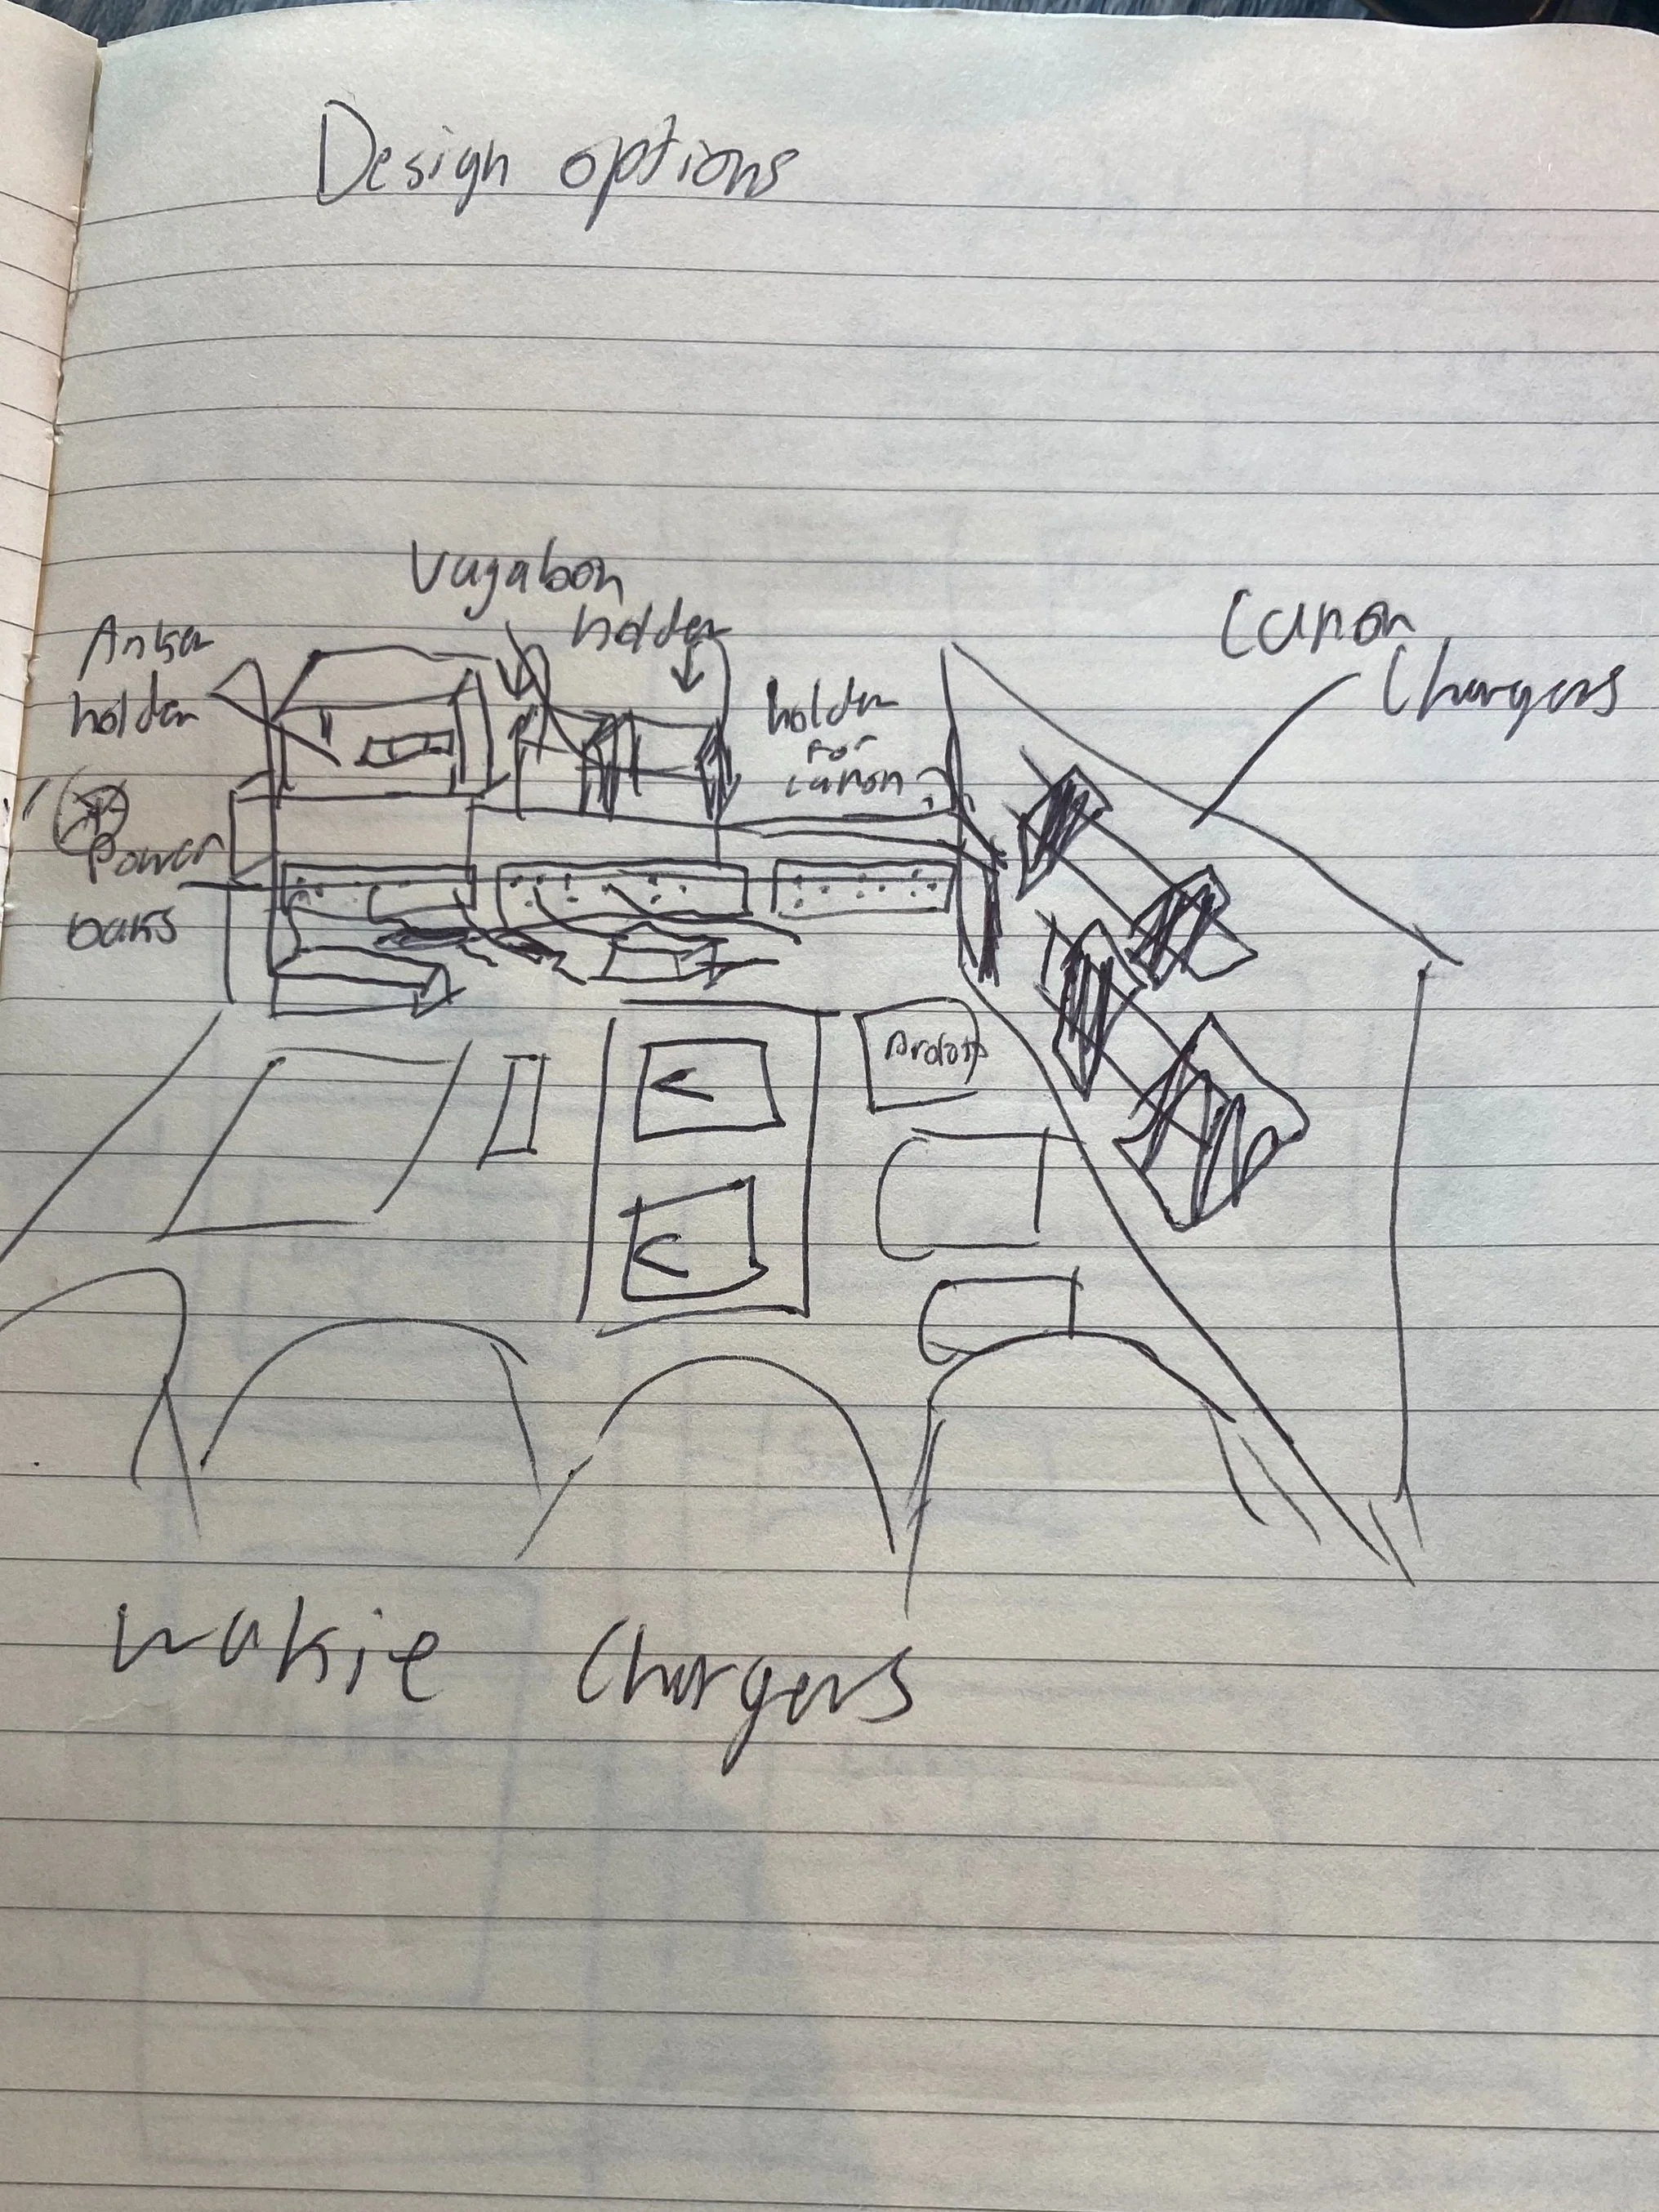 Design options
Vagabon
holder
Anker
holder
Canon
Chargers
holder
for
canon
Power
bars
wakie Chargers